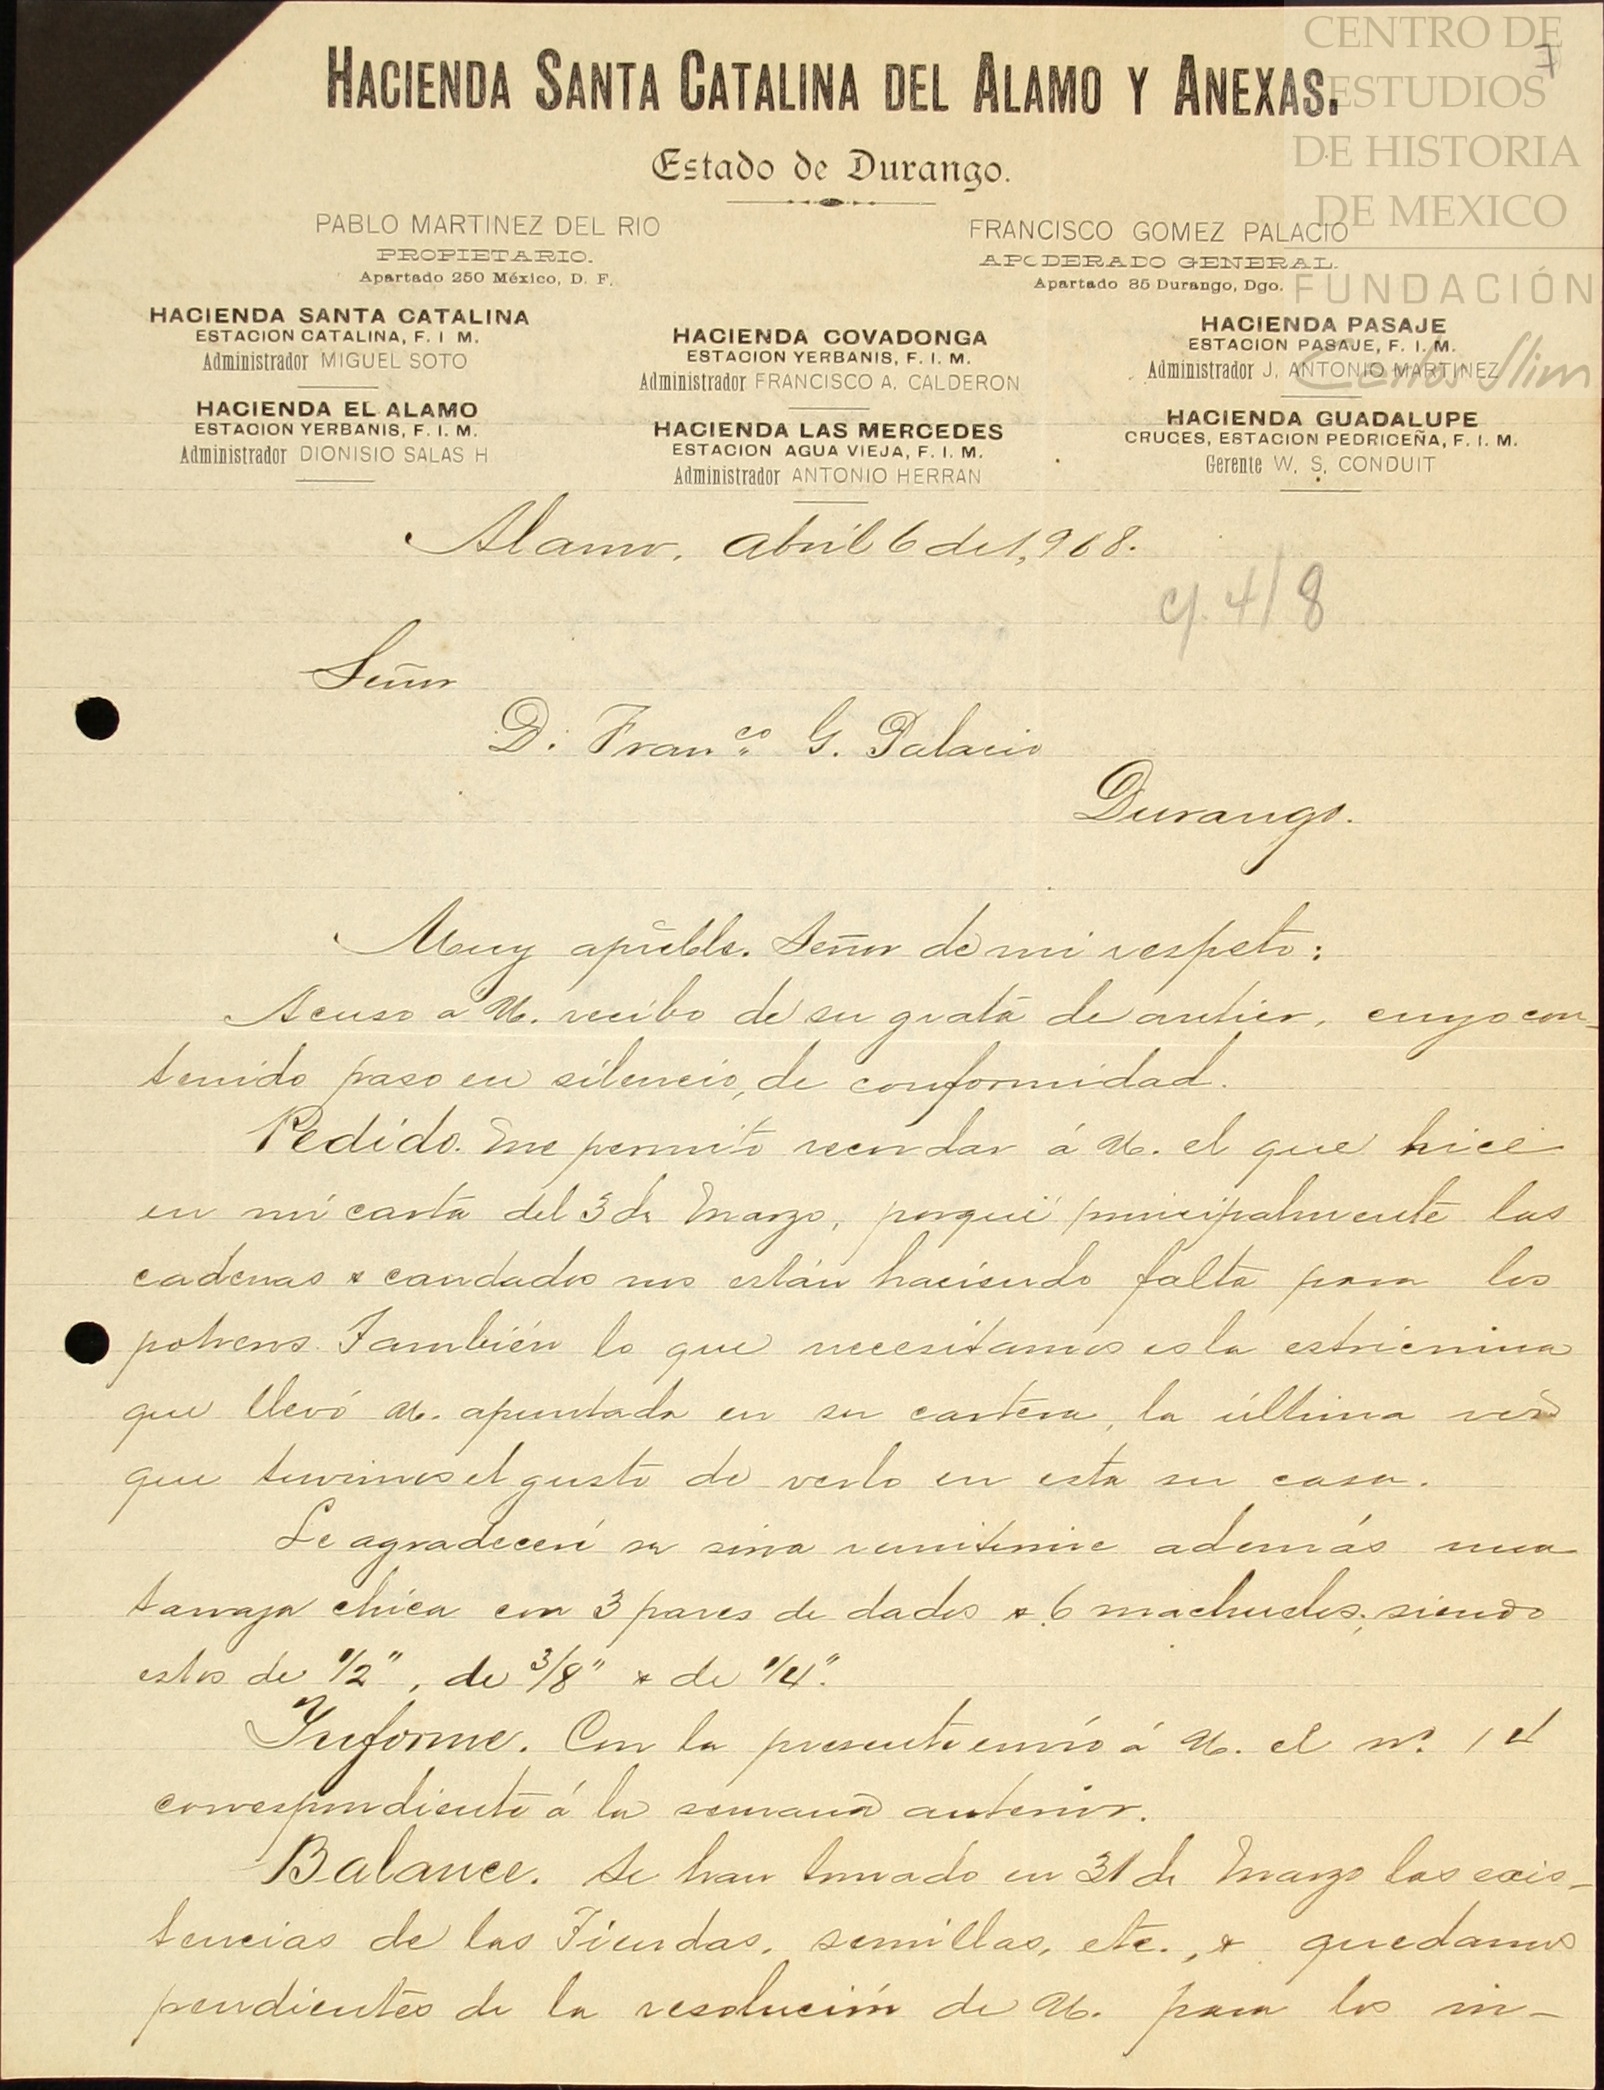 CENTRO DE
ESTUDIOS
DE HISTORIA
DE MEXICO
FUNDACIÓN
Carlos Slim
7
HACIENDA SANTA CATALINA DEL ALAMO Y ANEXAS.
Estado de Durango.
PABLO MARTINEZ DEL RIO
PROPIETARIO.
Apartado 250 México, D. F.
FRANCISCO GOMEZ PALACIO
APODERADO GENERAL.
Apartado 85 Durango, Dgo.
HACIENDA SANTA CATALINA
ESTACION CATALINA, F. I M.
Administrador MIGUEL SOTO
HACIENDA EL ALAMO
ESTACION YERBANIS, F. I. M.
Administrador DIONISIO SALAS H
HACIENDA COVADONGA
ESTACION YERBANIS, F. I. M.
Administrador FRANCISCO A. CALDERON
HACIENDA LAS MERCEDES
ESTACION AGUA VIEJA, F. I. M.
Administrador ANTONIO HERRAN
HACIENDA PASAJE
ESTACION PASAJE, F. I. M.
Administrador J. ANTONIO MARTINEZ
HACIENDA GUADALUPE
CRUCES, ESTACION PEDRICEÑA, F. I. M.
Gerente W. S. CONDUIT
Alamo, Abril 6 de 1,908.
c/. 4/8
Señor
D. Franco G. Palacio
Durango.
Muy apreble. Señor de mi respeto:
Acuso a U. recibo de su grata de antier, cuyo con-
tenido paso en silencio, de conformidad.
Pedido. Me permito recordar á U. el que hice
en mi carta del 3 de Marzo, porque principalmente las
cadenas & candados nos están haciendo falta para los
potreros. También lo que necesitamos es la estricnina
que llevó U. apuntada en su cartera, la última vez
que tuvimos el gusto de verlo en esta su casa.
Le agradeceré se sirva remitirme además una
tarraja chica con 3 pares de dados & 6 machuelos; siendo
estos de 1/2", de 3/8" & de 1/4".
Informe. Con la presente envío á U. el no. 14
correspondiente á la semana anterior.
Balance. Se han tomado en 31 de Marzo las exis-
tencias de las Tiendas, semillas, etc., & quedamos
pendientes de la resolución de U. para los in-